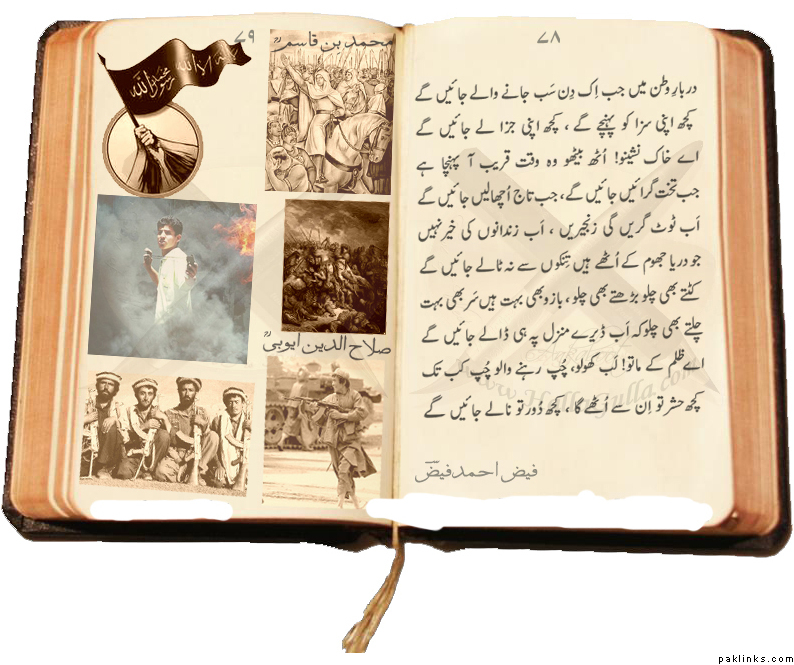 ۷۸
دربارِ وطن میں جب اِک دِن سَب جانے والے جائیں گے
کچھ اپنی سزا کو پہنچے گے ، کچھ اپنی جزا لے جائیں گے
اے خاک نشینو! اُٹھ بیٹھو وہ وقت قریب آ پہنچا ہے
جب تخت گرائیں جائیں گے، جب تاج اُچھالیں جائیں گے
اَب ٹوٹ گریں گی زنجیریں ، اَب زندانوں کی خیر نہیں
جو دریا جھوم کے اُٹھے ہیں تِنکوں سے نہ ٹالے جائیں گے
کٹتے بھی چلو بڑھتے بھی چلو، بازو بھی بہت ہیں سَر بھی بہت
چلتے بھی چلو کہ اَب ڈیرے منزل پہ ہی ڈالے جائیں گے
اے ظلم کے ماتو! لَب کھولو، چُپ رہنے والو چُپ کب تک
کچھ حشر تو اِن سے اُٹھے گا ، کچھ دُور تو نالے جائیں گے
فیض احمد فیضؔ
۷۹
محمد بن قاسمؒ
لا الہ الا اللہ
محمد رسول اللہ
صلاح الدین ایوبیؒ
paklinks.com